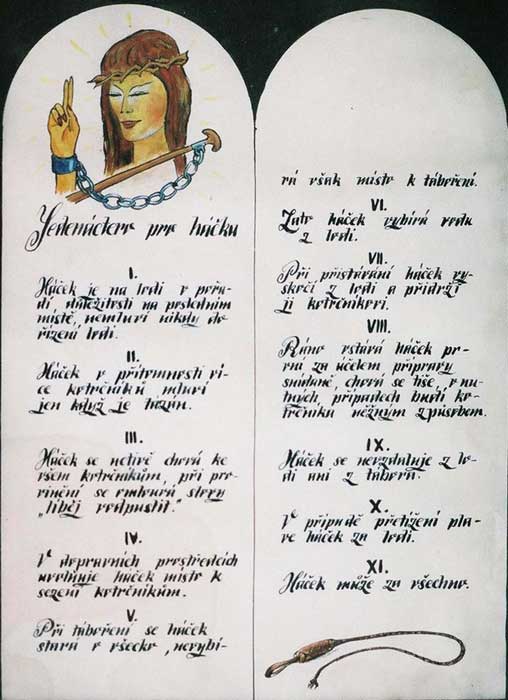 Jedenáctero pro háčka
I.
Háček je na lodi v pořa-
dí důležitosti na posledním
místě, nemluví nikdy do
řízení lodi.
II.
Háček v přítomnosti ví-
ce kotrčníků mluví
jen když je tázán.
III.
Háček se uctivě chová ke
všem kotrčníkům, při pro-
vinění se omlouvá slovy
"líběj odpustit."
IV.
V dopravních prostředcích
uvolňuje háček místo k
sezení kotrčníkům.
V.
Při táboření se háček
stará o všecko, nevybí-
rá však místo k táboření.
VI.
Zato háček vybírá vodu
z lodi.
VII.
Při přistávání háček vy-
skočí z lodi a přidrží
ji kotrčníkovi.
VIII.
Ráno vstává háček pr-
vní za účelem přípravy
snídaně, chová se tiše, v nu-
tných případech budí ko-
trčníka něžným způsobem.
IX.
Háček se nevzdaluje z lo-
di ani z tábora.
X.
V případě přetížení pla-
ve háček za lodí.
XI.
Háček může za všechno.